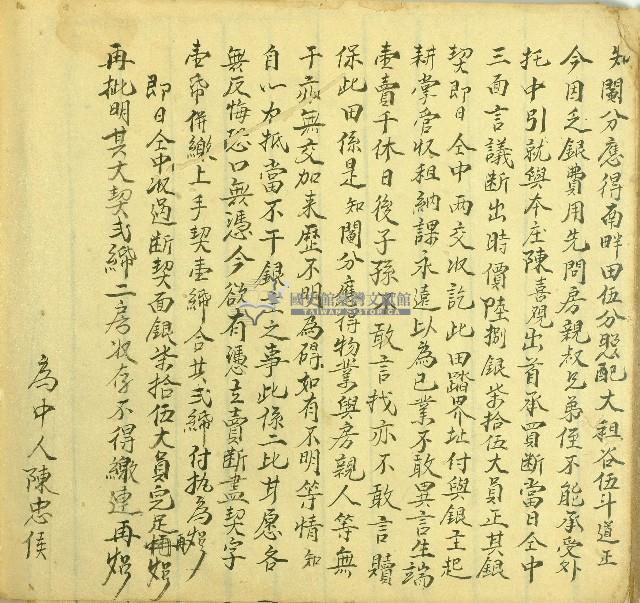 知鬮分應得南畔田伍分愿配大租谷伍斗道正
今因乏銀費用先問房親叔兄弟侄不能承受外
托中引就與本庄陳喜觀出首承買断當日仝中
三面言議断出時價陸捌銀柒拾伍大員正其銀
契即日仝中兩交收訖此田踏界址付與銀主起
耕掌管收租納課永遠以為己業不敢異言生端
壹賣千休日後子孫不敢言找亦不敢言贖
保此田係是知鬮分應得物業與房親人等無
干亦無交加来歷不明為碍如有不明等情知
自心力抵當不干銀主之事此係二比甘愿各
無反悔恐口無憑今欲有憑立賣断盡契字
壹帋併繳上手契壹帋合共弍帋付执為炤
即日仝中收過断契面銀柒拾伍大員完足再炤
再批明其大契弍帋二房收存不得繳連再炤
為中人陳忠侯
國史館臺灣文獻館
TAIWAN HISTORICA